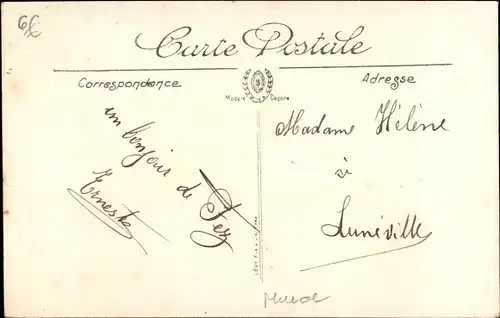 6€
Carte Postale
Correspondance
Adresse
Modèle Déposé
un bonjour
de Fez
Erneste
Madame Hélène
à
Lunéville